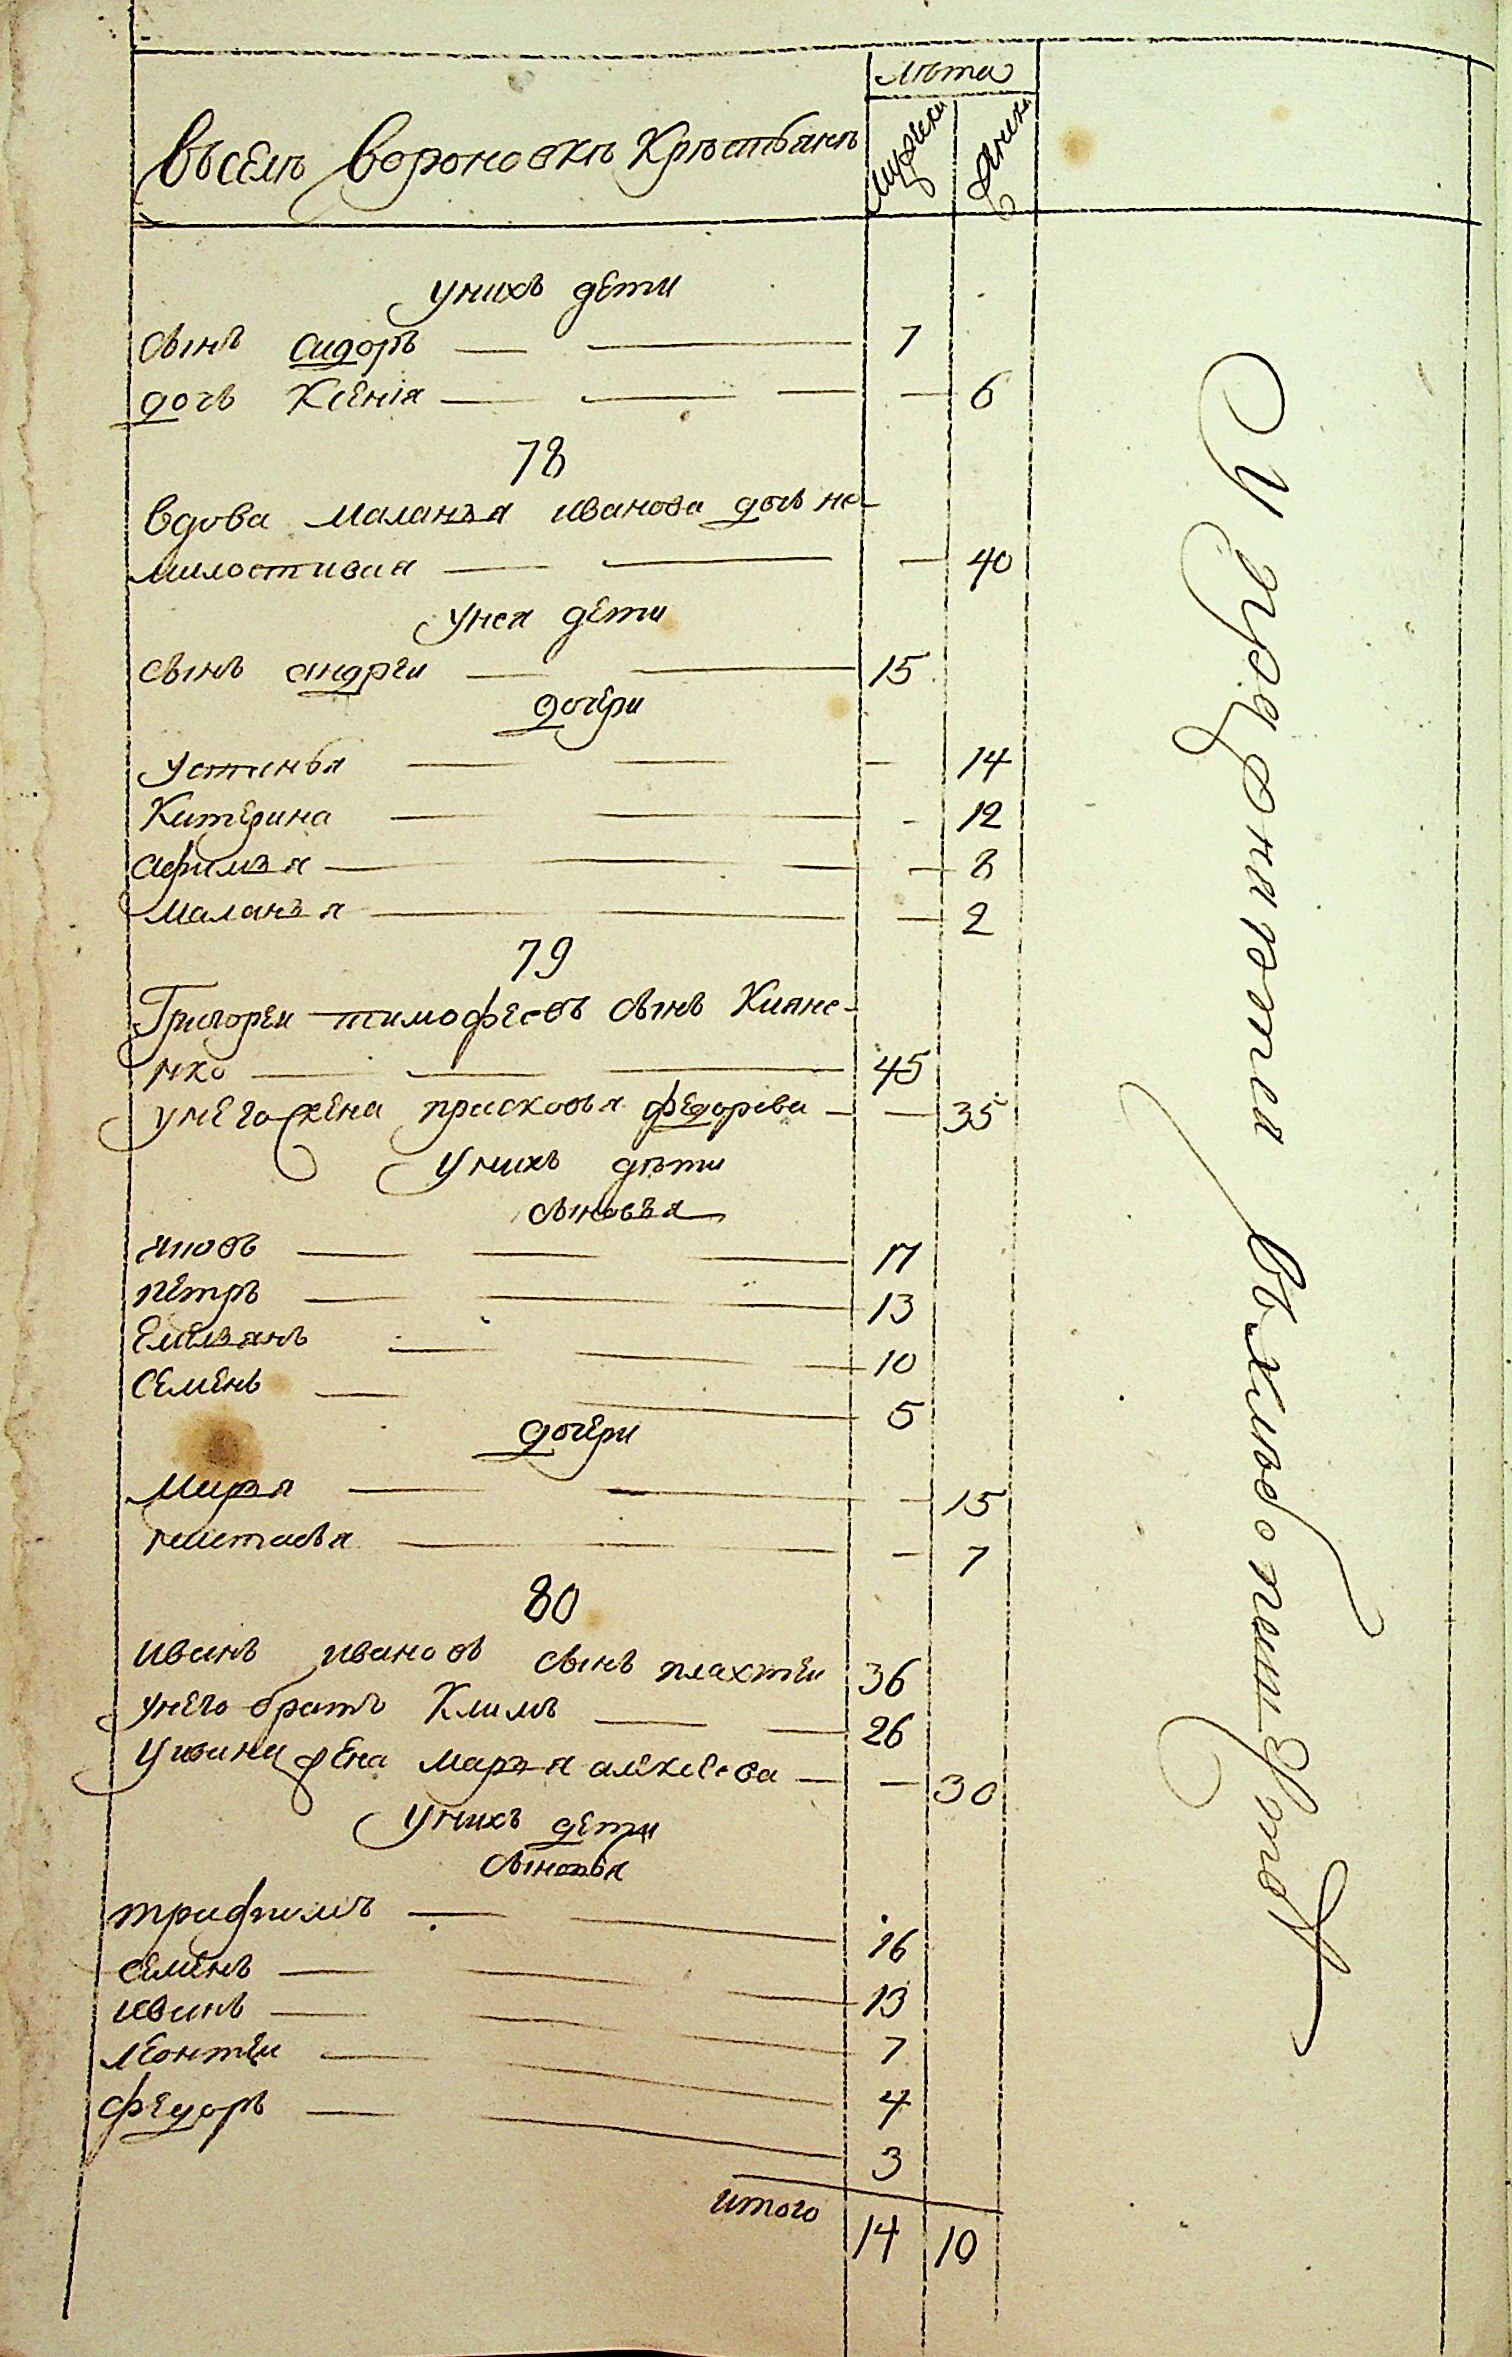 лѣта
Въселѣ Вороновкѣ Крѣстьянъ
мужеска
женска
унихъ дети
сынъ сидоръ 7
дочь Ксенія 6
78
вдова маланья иванова дочь не-
милостивая 40
унея дети
сынъ андреи 15
дочери
устинья 14
Катерина 12
афимья 8
маланья 2
79
Григореи тимофеевъ сынъ Кияне-
нко 45
унегожена прасковья федорова 35
Унихъ дѣти
сыновья
яковъ 17
петръ 13
Емельянъ 10
Семенъ 5
дочери
Марья 15
настасья 7
80
иванъ ивановъ сынъ плахтеи 36
унего братъ Климъ 26
Уивана жена марья алексеева 30
Унихъ дети
сыновья
трафимъ 16
семенъ 13
иванъ 7
леонтеи 4
федоръ 3
итого 14 10
Упражняется вхлебопашестве